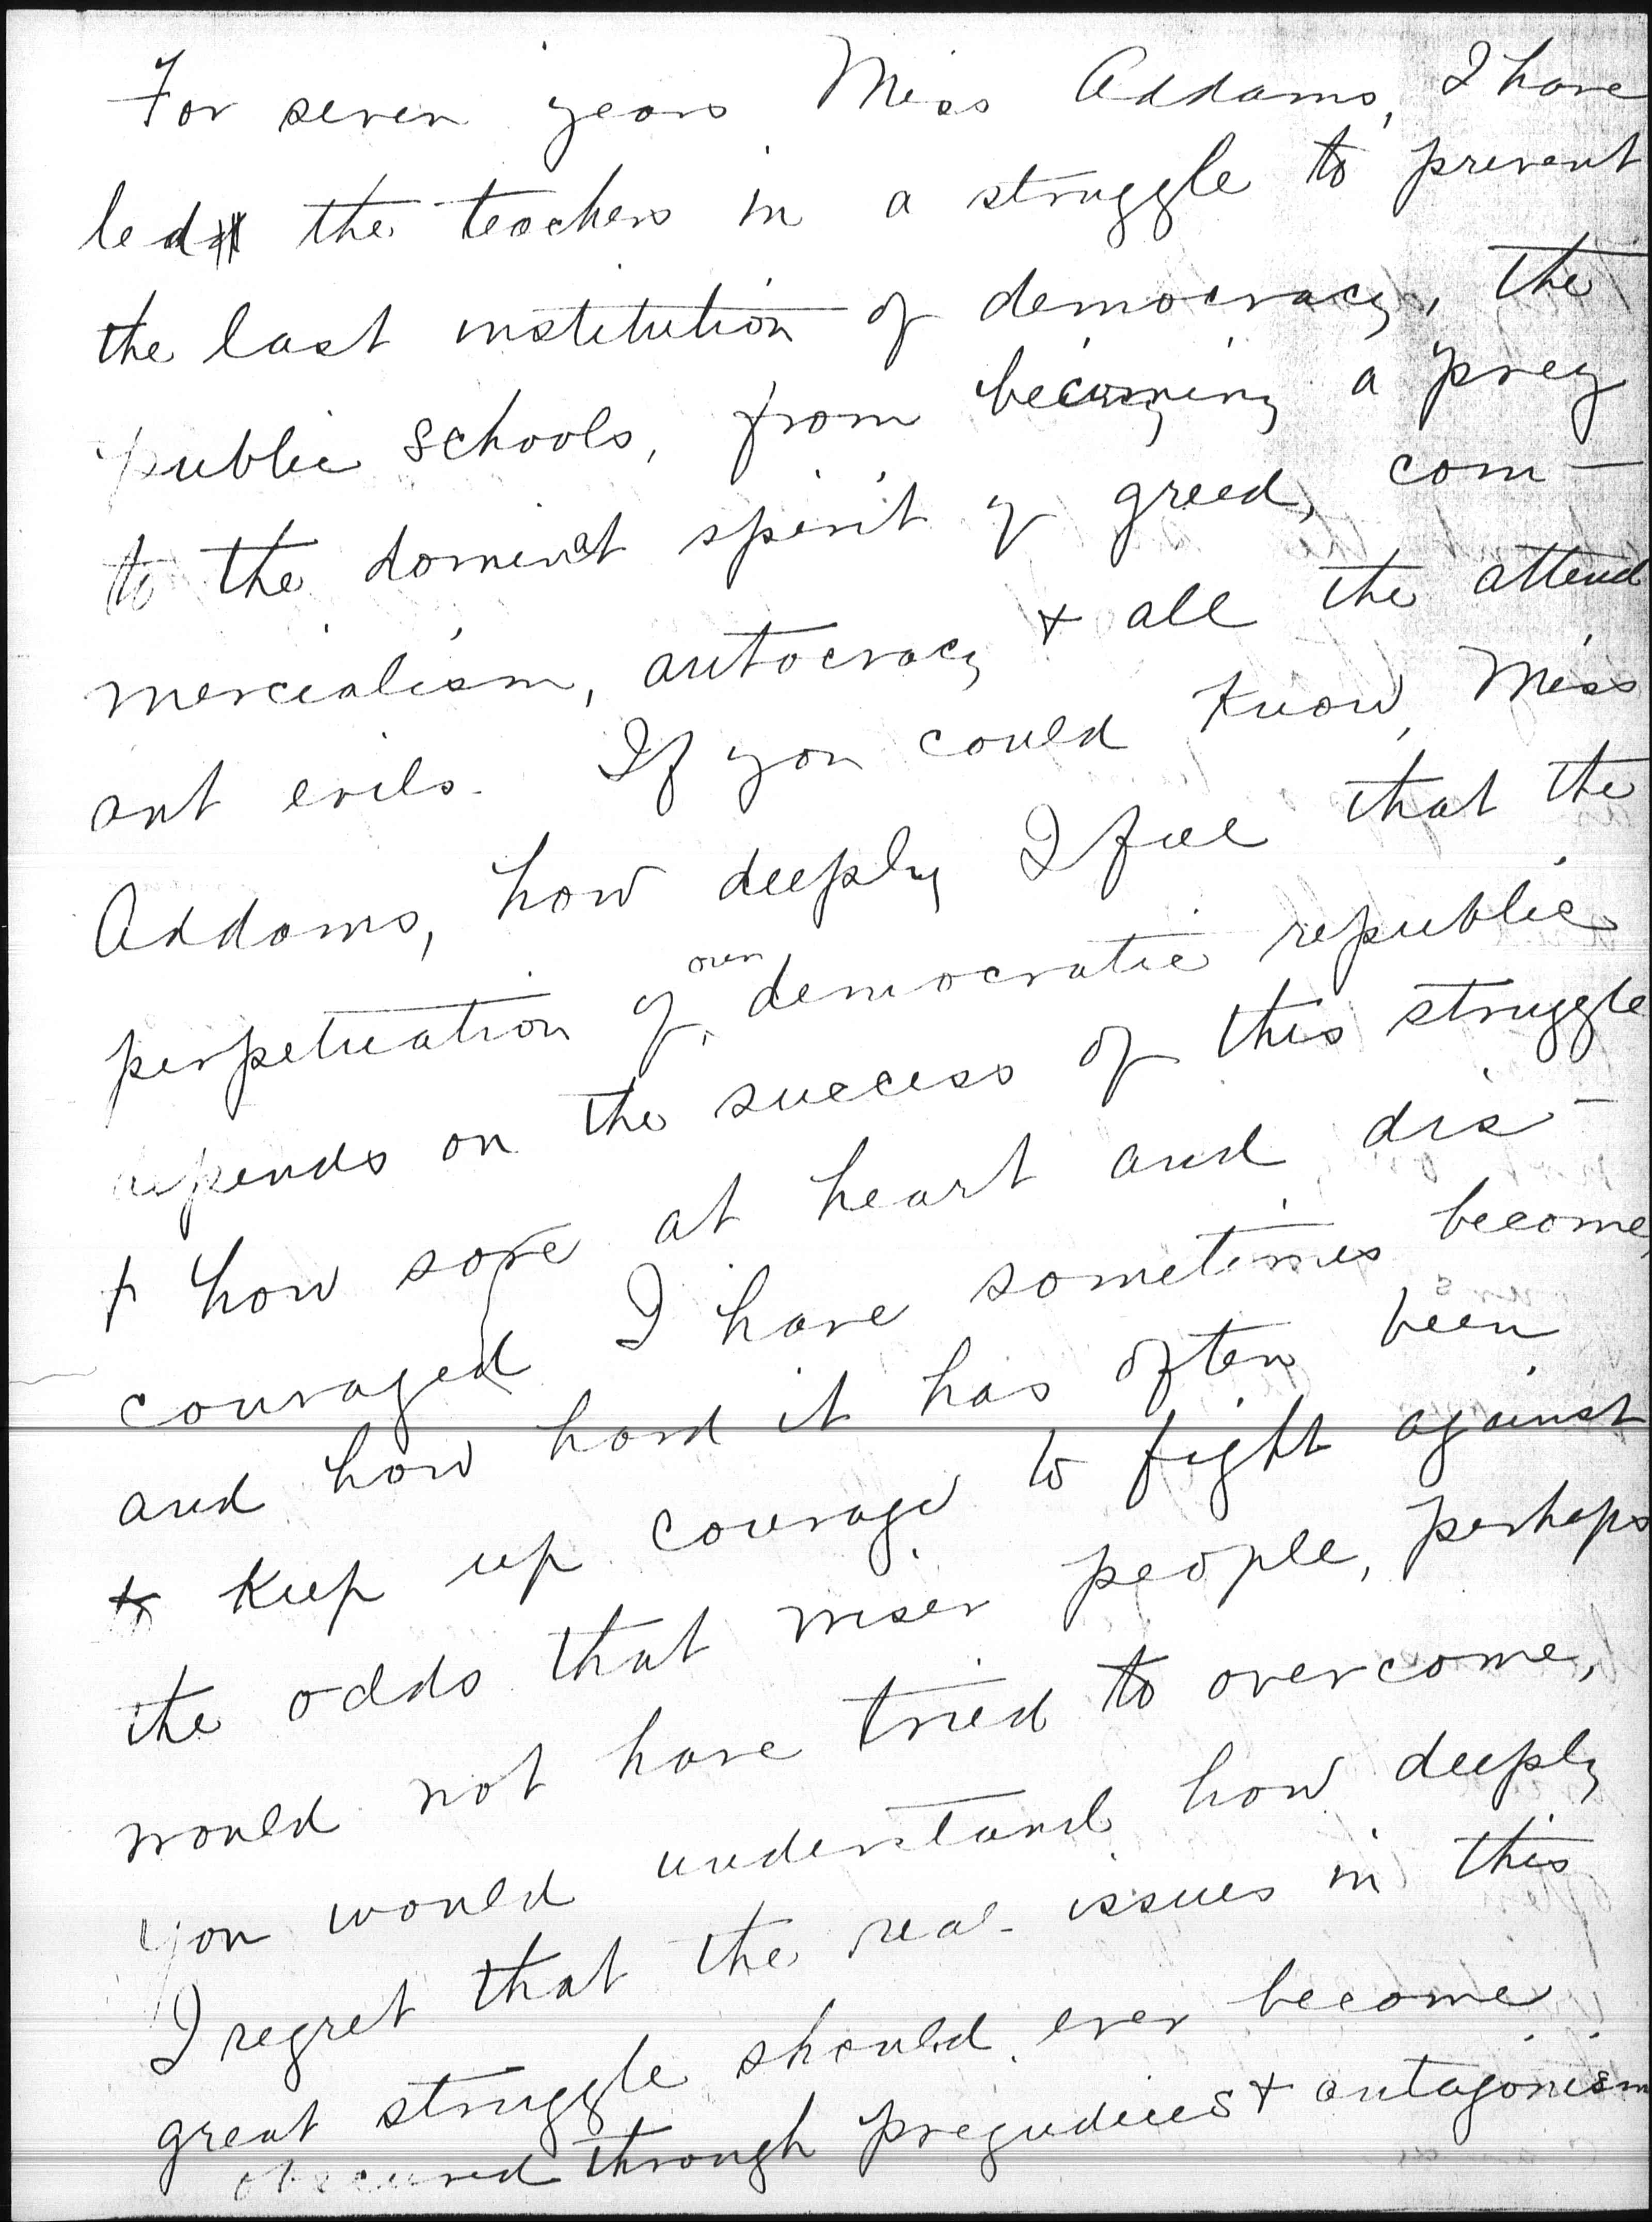 For seven years Miss Addams, I have
led the teachers in a struggle to prevent
the last institution of democracy, the
public schools, from becoming a prey
to the dominat spirit of greed, com-
mercialism, autocracy & all the attend
ant evils. If you could know, Miss
Addams, how deeply I feel that the
perpetuation of our democratic republic
depends on the success of this struggle
& how sore at heart and dis-
couraged I have sometimes become,
and how hard it has often been
to keep up courage to fight against
the odds that wiser people, perhaps
would not have tried to overcome,
you would understand how deeply
I regret that the real issues in this
great struggle should ever become
obscured through prejudices & antagonism